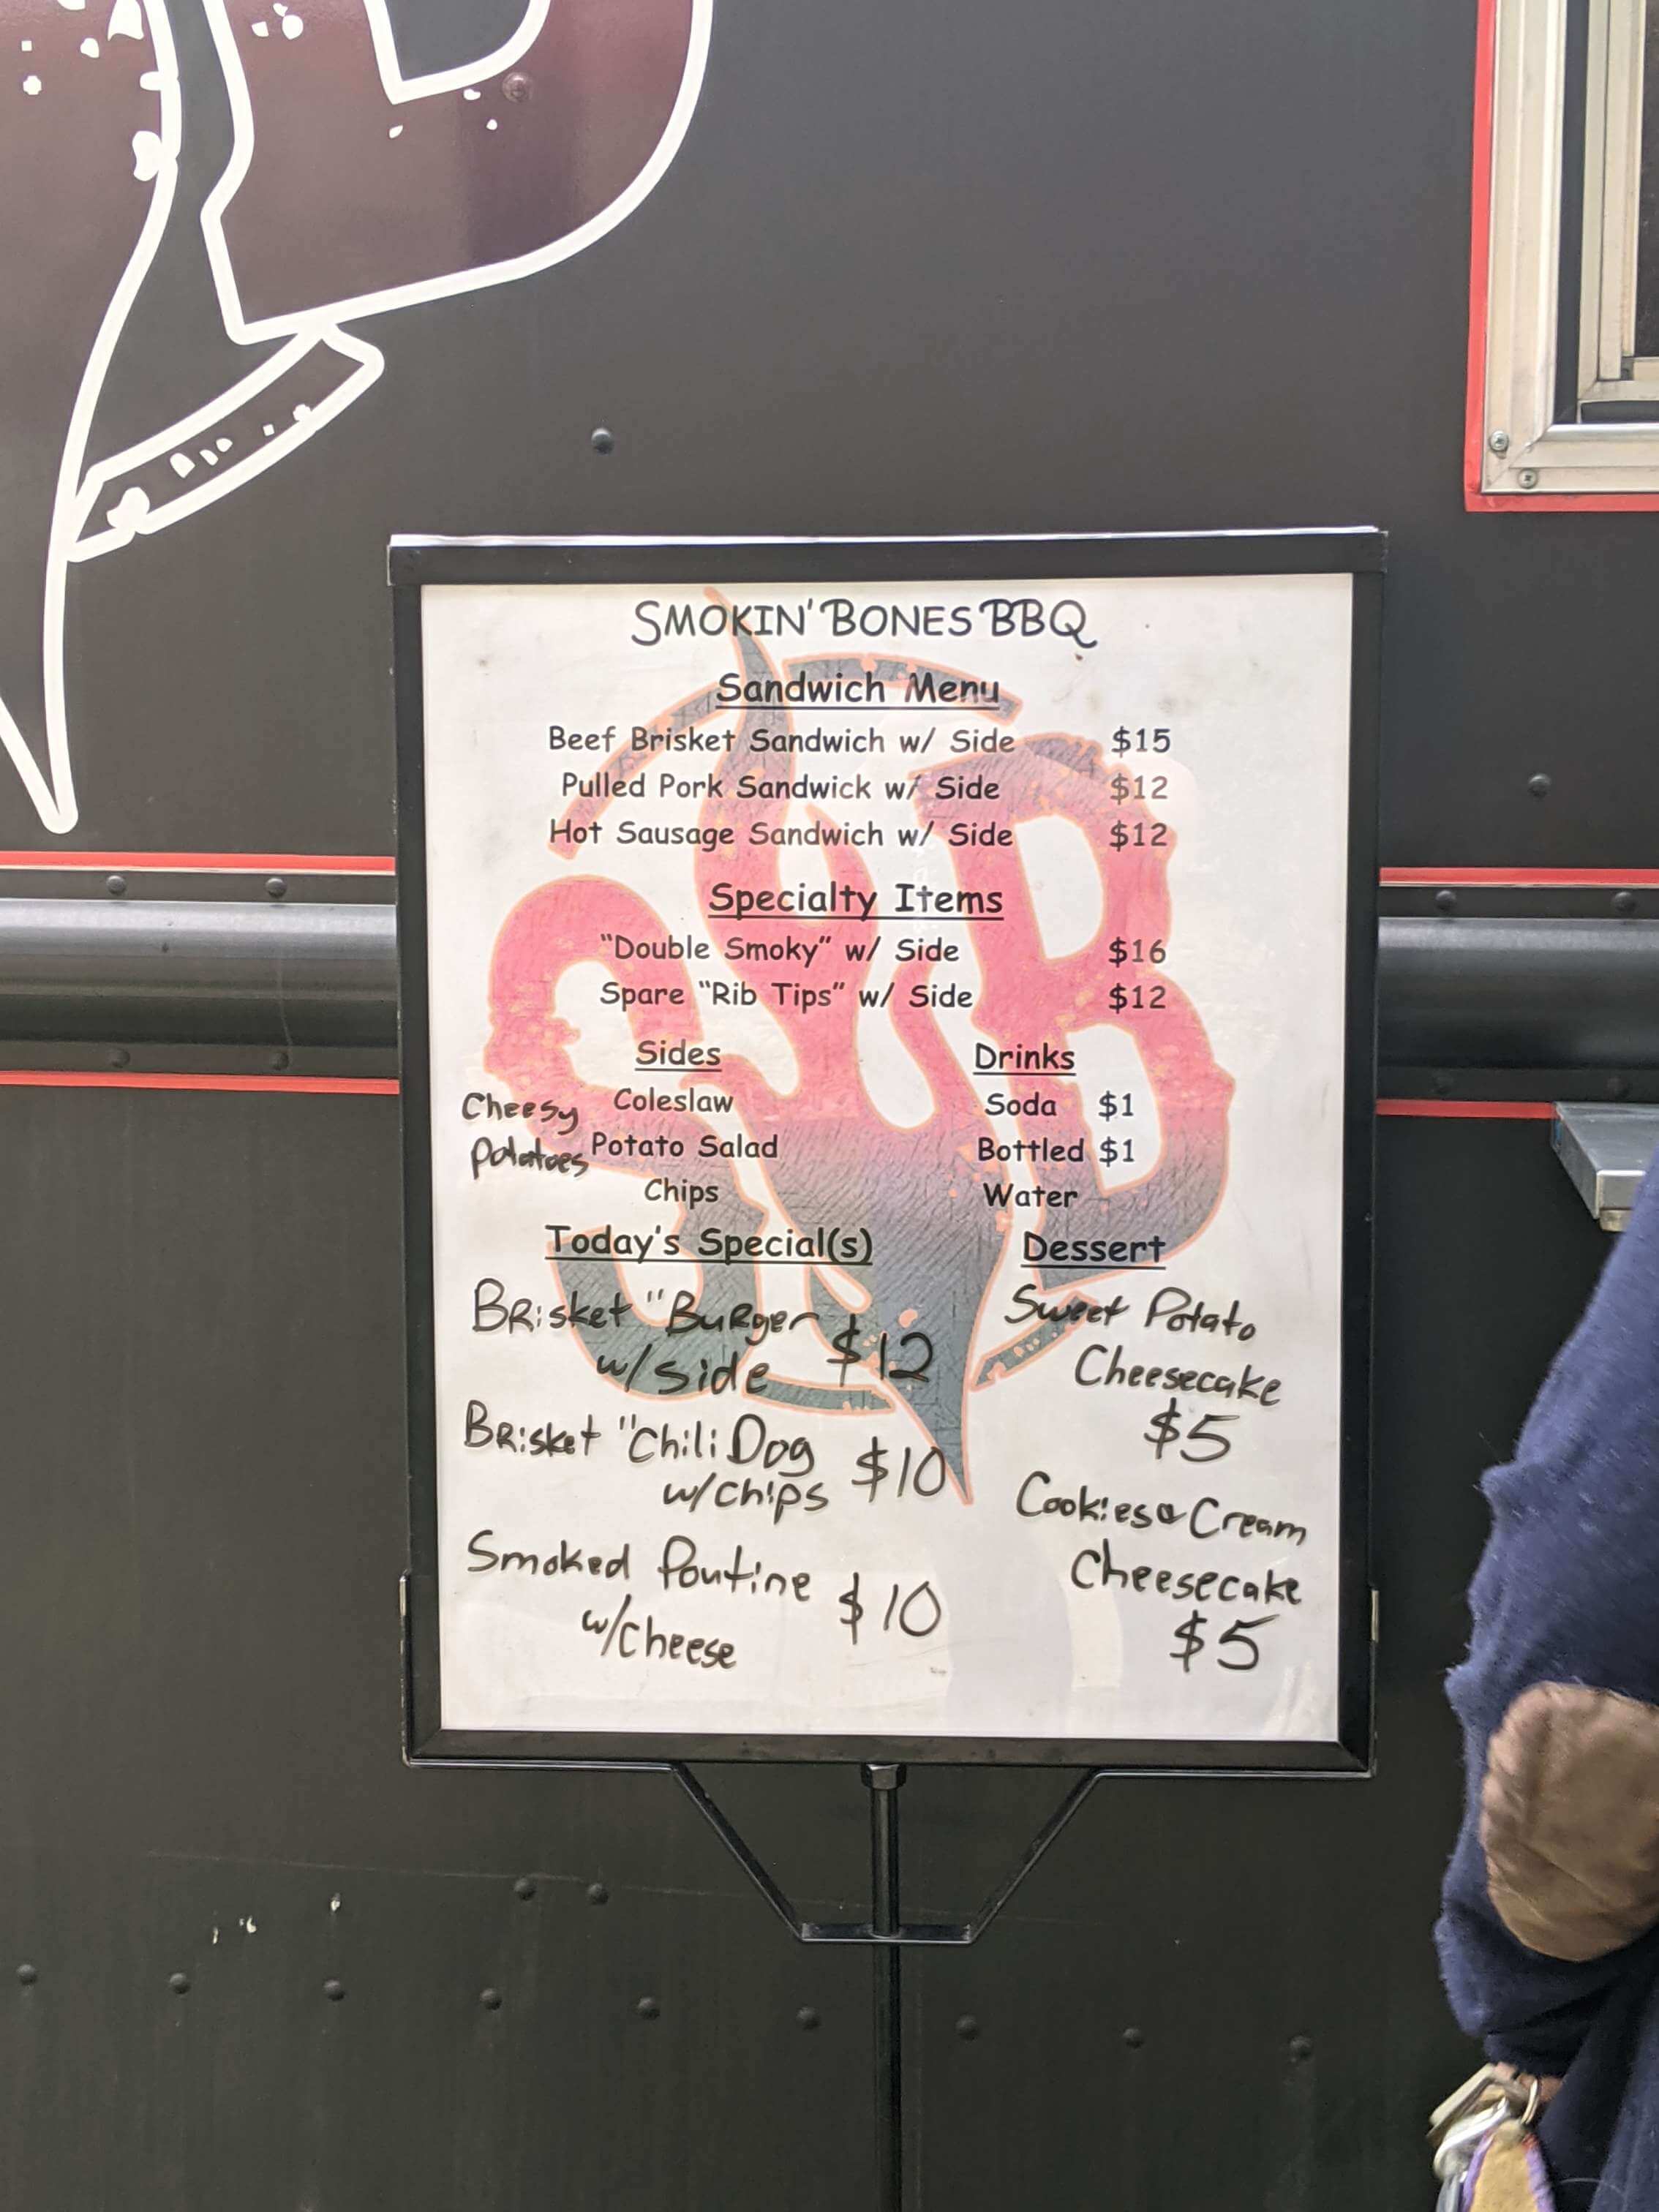 SMOKIN' BONES BBQ
Sandwich Menu
Beef Brisket Sandwich w/ Side $15
Pulled Pork Sandwick w/ Side $12
Hot Sausage Sandwich w/ Side $12
Specialty Items
"Double Smoky" w/ Side $16
Spare "Rib Tips" w/ Side $12
Sides
Coleslaw
Cheesy
Potatoes
Potato Salad
Chips
Drinks
Soda $1
Bottled $1
Water
Today's Special(s)
Brisket "Burger
w/ side $12
Brisket "Chili Dog
w/chips $10
Smoked Poutine
w/cheese $10
Dessert
Sweet Potato
Cheesecake
$5
Cookies & Cream
Cheesecake
$5
SYB